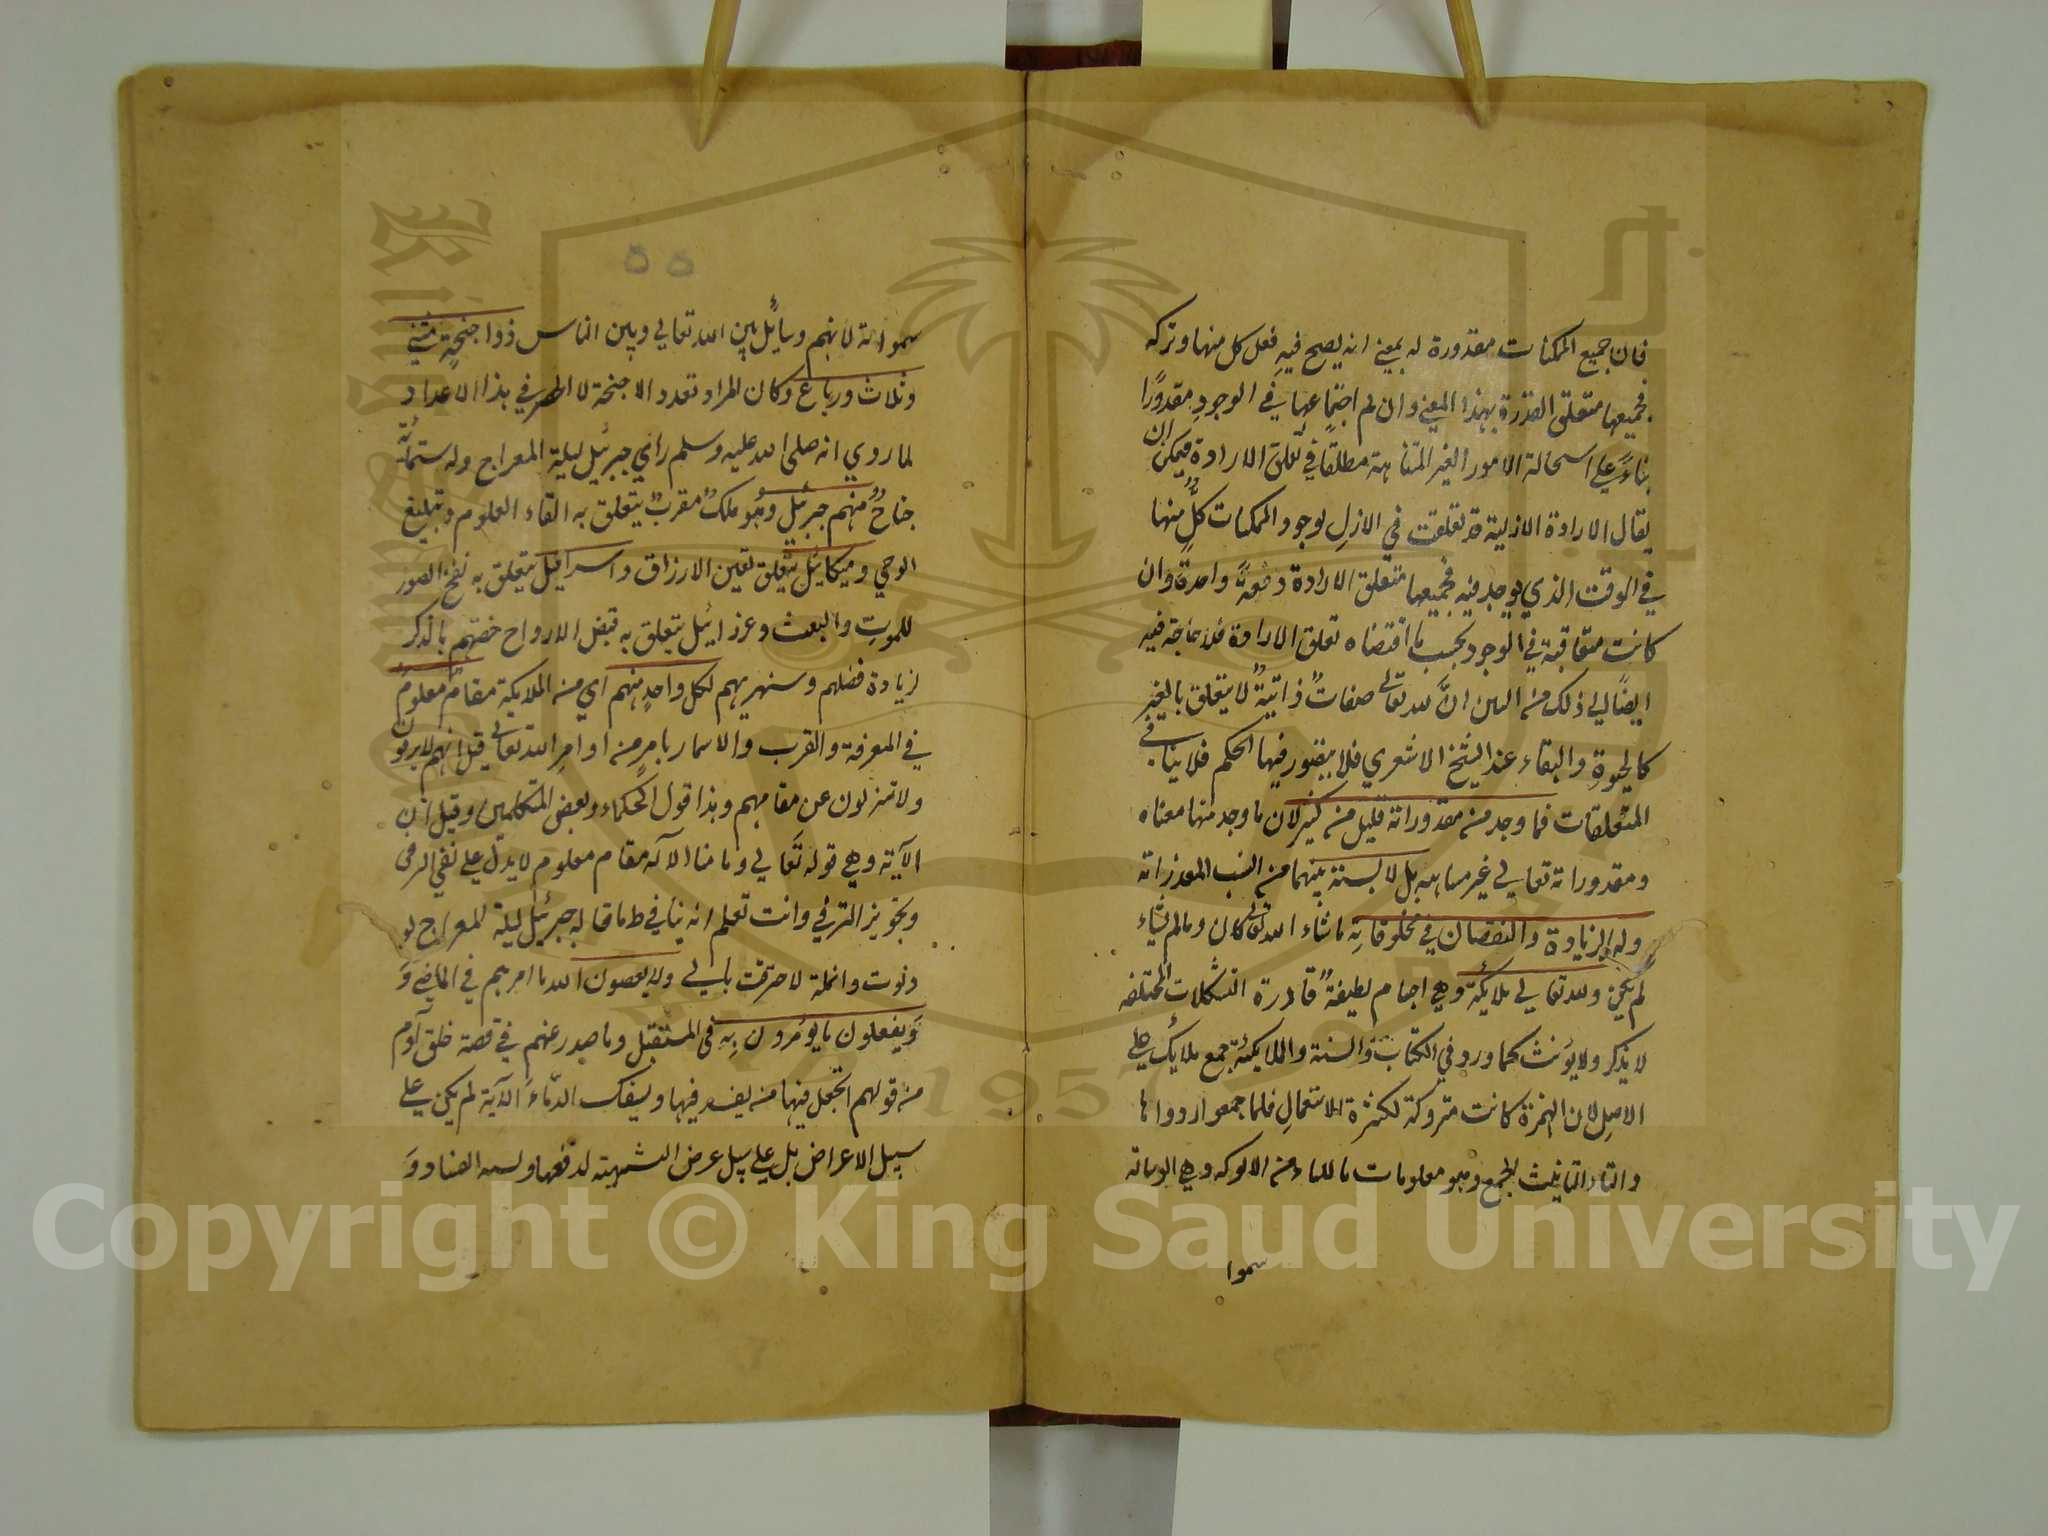 فان جميع الممكنات مقدورة له بمعنى انه يصح فيه فعل كل منها وتركه
فجميعها متعلق القدرة بهذا المعنى وان لم اجتماعها في الوجود مقدورًا
بناءً على استحالة الامور الغير المتناهية مطلقا في تعلق الارادة فيمكن ان
يقال الارادة الازلية قد تعلقت في الازل بوجود الممكنات كلٍ منها
في الوقت الذي يوجد فيه فجميعها متعلق الارادة دفعةً واحدة وان
كانت متعاقبة في الوجود بحسب ما اقتضاه تعلق الارادة فلا حاجة فيه
ايضًا الى ذلك من البين انَّ لله تعالى صفاتٌ ذاتيةٌ لا يتعلق بالغير
كالحيوة والبقاء عند الشيخ الاشعري فلا يتصور فيها الحكم فلا ينافي
المتعلقات فما وجد من مقدوراته قليل من كثير لان ما وجد منها متناه
ومقدوراته تعالى غير متناهية بل لا نسبة بينهما من النسب المقدراتة
وله الزيادة والنقصان في مخلوقاتِه ما شاء الله تعالى كان وما لم يشاء
لم يكن ولله تعالى ملائكة وهي اجسام لطيفةٌ قادرة التشكلات المختلفة
لا يذكر ولا يؤنث كما ورد في الكتاب والسنة والملائكة جمع ملايك على
الاصل لان الهمزة كانت متروكة لكثرة الاستعمال فلما جمعوا ردوا ها
والتاء التانيث الجمع وهو معلومات مالكاء من الالوكه وهي الرسالة
سموا
٥٥
سموا به لانهم وسائل بين الله تعالى وبين الناس ذوا جنحةٍ مثنى
وثلاث ورباع وكان المراد تعدد الاجنحة لا الحصر في هذا الاعداد
لما روي انه صلى الله عليه وسلم راي جبرئيل ليلة المعراج وله ستمائة
جناحٌ منهم جبرئيل وهو ملكٌ مقربٌ يتعلق به القاء العلوم وتبليغ
الوحي وميكائيل يتعلق تعين الارزاق واسرافيل يتعلق به نفخ الصور
للموت والبعث وعزرائيل يتعلق به قبض الارواح خصهم بالذكر
لزيادة فضلهم وشهرتهم لكل واحدٍ منهم اي من الملايكة مقامٌ معلومٌ
في المعرفة والقرب والايتمار بامرٍ من اوامر الله تعالى قيل انهم لا يرقون
ولا تنزلون عن مقامهم وهذا قول الحكماء وبعض المتكلمين وقيل ان
الآية وهي قوله تعالى وما منا الا له مقام معلوم لا يدل على نفي الترقى
وتجويز الترقي وانت تعلم انه ينافي ط ما قاله جبرئيل ليلة المعراج لو
دنوت وانملة لاحترقت بالى ولا يعصون الله ما امرهم في الماضي وَ
وَيفعلون ما يؤمرون بِه فى المستقبل وما صدر عنهم في قصة خلق آدم
من قولهم اتجعل فيها من يفسد فيها ويسفك الدّماءَ الآية لم يكن على
سبيل الاعراض بل على سبيل عرض الشبهة لدفعها وليس العناد وَ
Copyright © King Saud University
1957